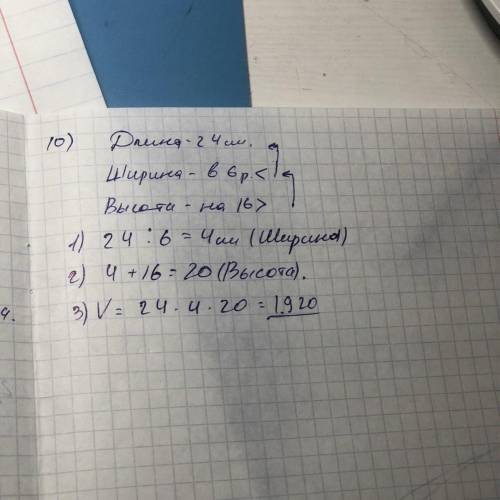 10) Длина - 24 см.
Ширина - в 6 р. <
Высота - на 16 >
1) 24 : 6 = 4 см (Ширина)
2) 4 + 16 = 20 (Высота).
3) V = 24 · 4 · 20 = 1920
4.